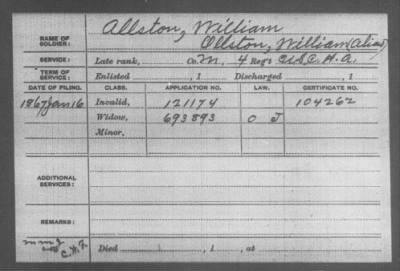 NAME OF SOLDIER: Allston, William
Ollston, William (Alias)
SERVICE: Late rank, Co. M, 4 Reg't U.S.C.H.A.
TERM OF SERVICE: Enlisted , 1 Discharged , 1
DATE OF FILING. CLASS. APPLICATION NO. LAW. CERTIFICATE NO.
1867 Jan 16 Invalid, 121174 104262
Widow, 693893 O J
Minor,
ADDITIONAL SERVICES:
REMARKS:
C.H.F. Died , 1 , at